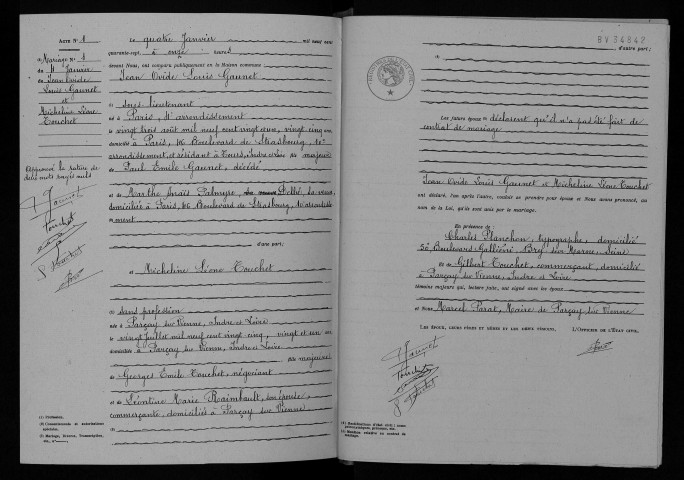 ACTE N° 1
Mariage N° 1
du 4 Janvier
de Jean Ovide
Louis Gaunet
et
Micheline Léone
Touchet
Approuvé la rature de
mots rayés nuls
Le quatre Janvier mil neuf cent
quarante-sept, à onze heures
devant Nous, ont comparu publiquement en la Maison commune
Jean Ovide Louis Gaunet
(1) Sous-lieutenant
né à Paris, arrondissement
le vingt trois août mil neuf cent vingt, vingt cinq ans,
domicilié à Paris, 46 Boulevard de Strasbourg, 10e
arrondissement, et résidant à Tours, Indre et Loire majeur
Paul Emile Gaunet, décédé
et de Marthe Palmyre, sa veuve,
domiciliée à Paris, 46 Boulevard de Strasbourg, 10e arrondisse
ment
d'une part;
et Micheline Léone Touchet
(1) sans profession
née à Parçay sur Vienne, Indre et Loire
le vingt Juillet mil neuf cent vingt cinq, vingt et un ans
domiciliée à Parçay sur Vienne, Indre et Loire
fille majeure
de Georges Emile Touchet, négociant
et de Léontine Marie Raimbault, son épouse,
commerçante, domiciliés à Parçay sur Vienne
(1) Profession.
(2) Consentements et autorisations
spéciales.
(3) Mariage, Divorce, Transcription,
etc., n°
BV 34642
d'autre part;
(3)
Les futurs époux déclarent qu'il n'a pas été fait de
contrat de mariage
Jean Ovide Louis Gaunet et Micheline Léone Touchet
ont déclaré, l'un après l'autre, vouloir se prendre pour époux et Nous avons prononcé, au
nom de la Loi, qu'ils sont unis par le mariage.
En présence de :
Charles Planchon, typographe, domicilié
32, Boulevard Galliéni, Bry sur Marne, Seine
Et de Gilbert Touchet, commerçant, domicilié
à Parçay sur Vienne, Indre et Loire
témoins majeurs qui, lecture faite, ont signé avec les époux
et Nous Marcel Parat, Maire de Parçay sur Vienne
LES ÉPOUX, LEURS PÈRES ET MÈRES ET LES DEUX TÉMOINS, L'OFFICIER DE L'ÉTAT CIVIL,